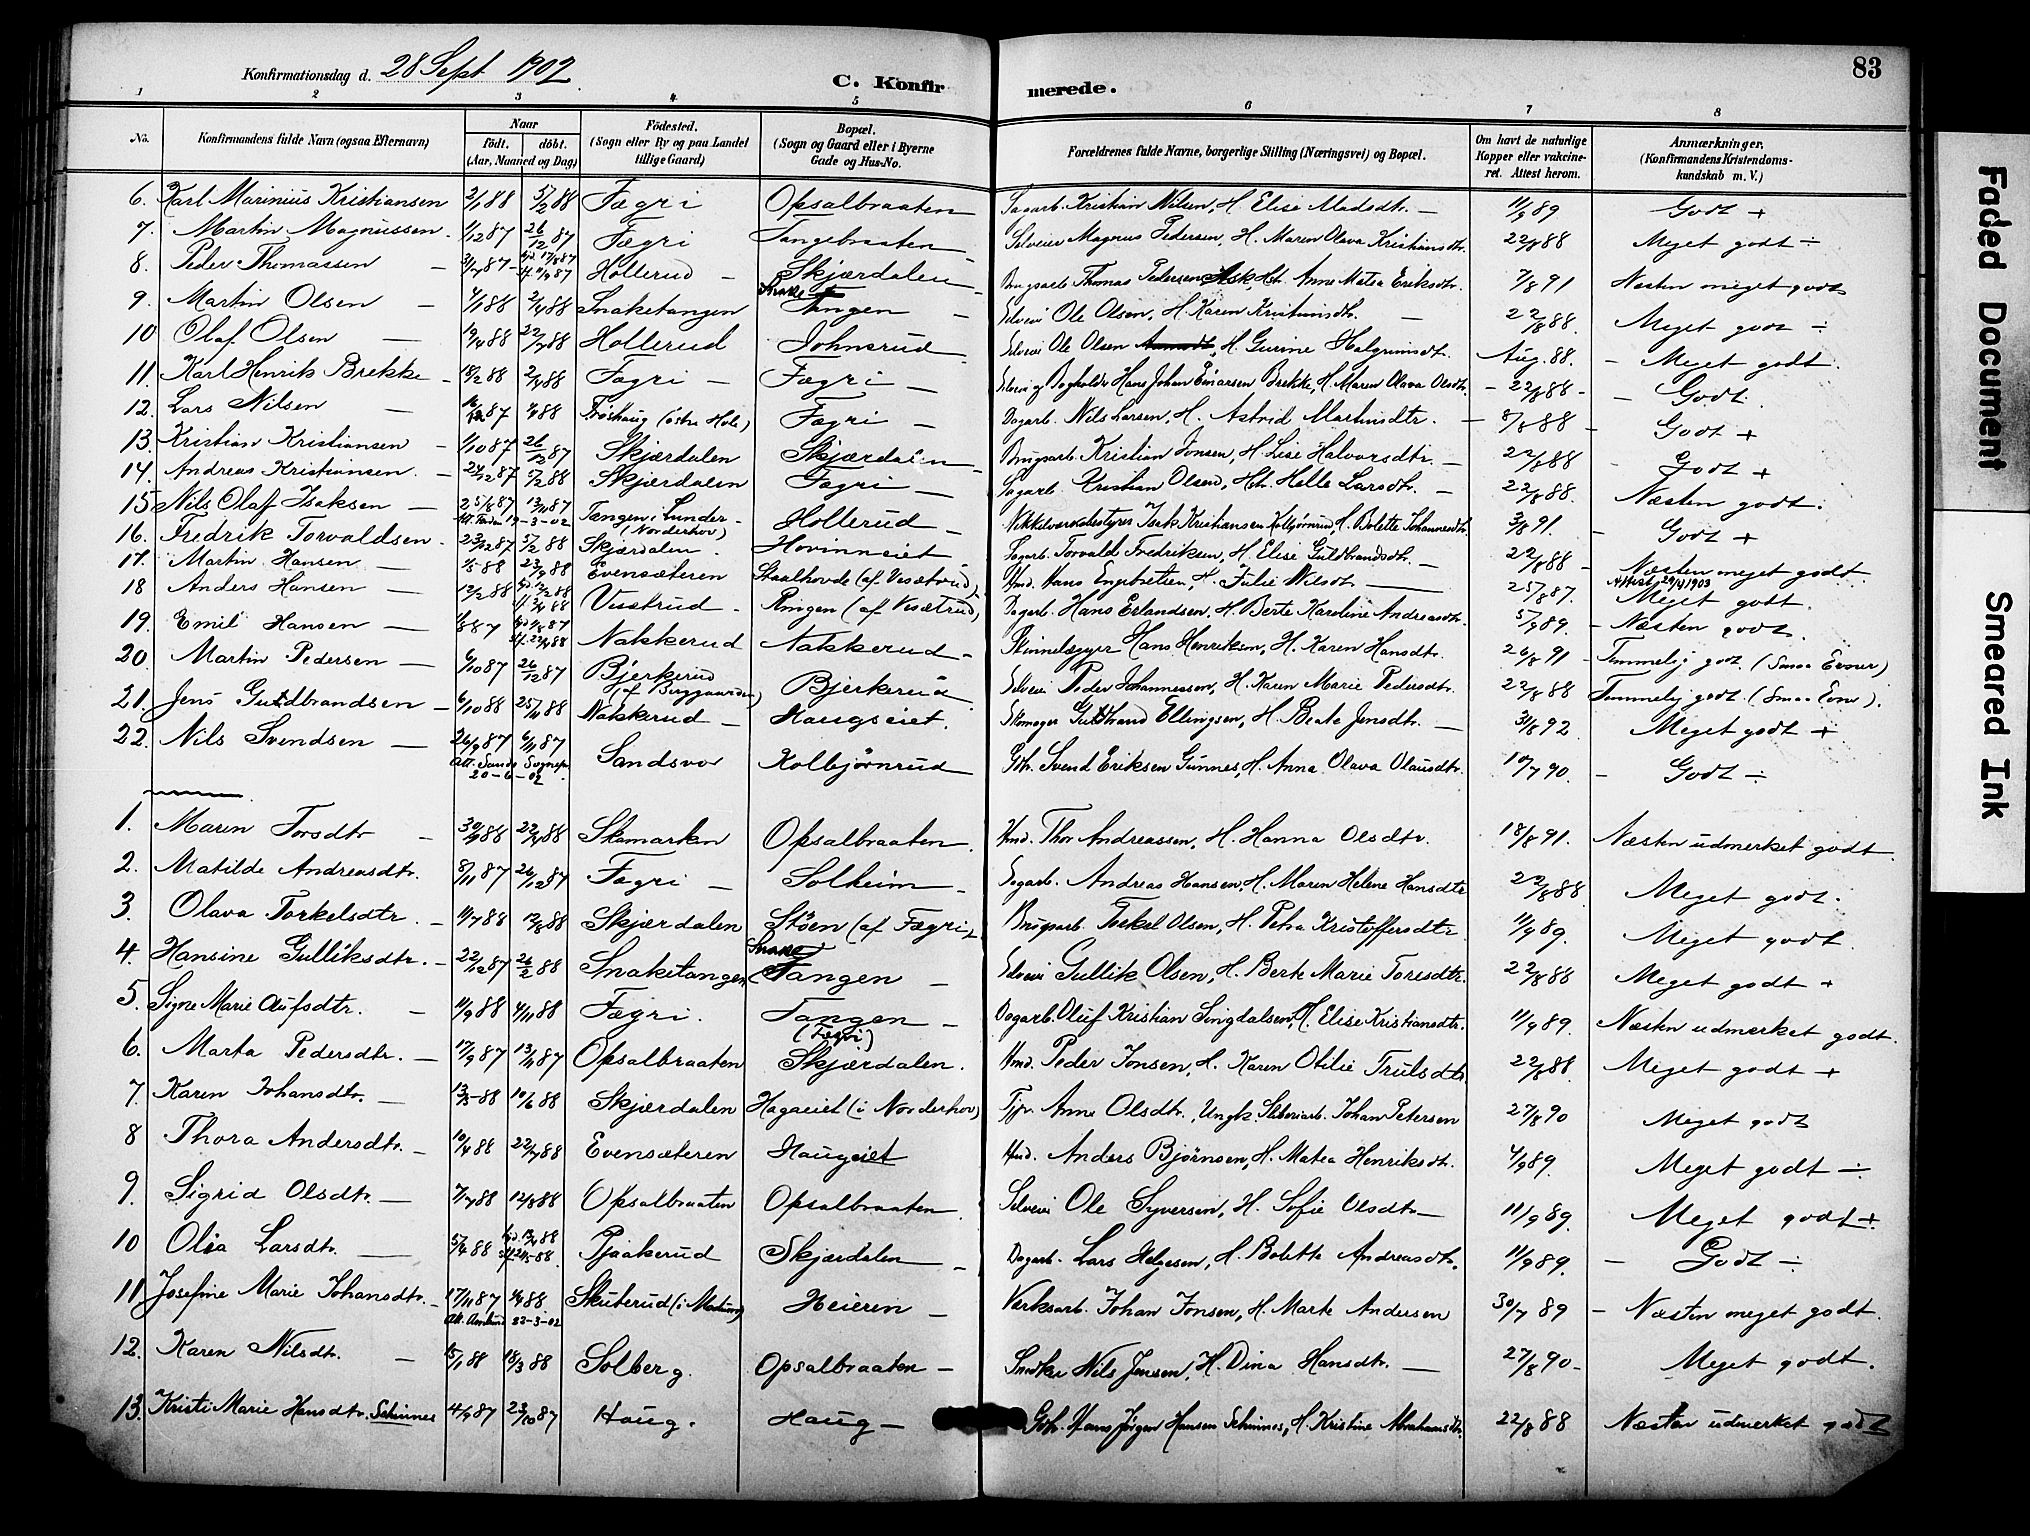 Konfirmationsdag d. 28 Sept 1902
C. Konfirmerede.
83
1 2 3 4 5 6 7 8
No.
Konfirmandens fulde Navn (ogsaa Efternavn)
Naar
födt. döbt.
(Aar, Maaned og Dag)
Födested.
(Sogn eller By og paa Landet
tillige Gaard)
Bopæl.
(Sogn og Gaard eller i Byerne
Gade og Hus-No.
Forældrenes fulde Navne, borgerlige Stilling (Næringsvei) og Bopæl.
Om havt de naturlige
Kopper eller vakcine-
ret. Attest herom.
Anmærkninger.
(Konfirmandens Kristendoms-
kundskab m. V.)
6. Karl Marinius Kristiansen 2/1 88 5/2 88 Fægri Opsalbraaten Sagarb. Kristian Nilsen, H. Elise Madsdtr. 11/9 89 Godt +
7. Martin Magnussen 1/12 87 26/12 87 Fægri Tangebraaten Selveier Magnus Pedersen, H. Maren Olava Kristiansdtr. 22/8 88 Meget godt ÷
8. Peder Thomassen Hollerud Skjærdalen Brugsarb. Thomas Pedersen Ask H. Anne Matea Eriksdtr. 7/8 91 Næsten meget godt
9. Martin Olsen 4/1 88 2/4 88 Snaketangen Snake Tangen Selveier Ole Olsen, H. Karen Kristiansdtr. 22/8 88. Meget godt ÷
10 Olaf Olsen 19/4 88 22/7 88 Hollerud Johnsrud Selveier Ole Olsen, H. Gurine Halgrimsdtr. Aug. 88. Meget godt.
11. Karl Henrik Brekke 18/2 88 2/4 88 Fægri Fægri Selvei og Bogholder Hans Johan Einarsen Brekke, H. Maren Olava Olsdtr. 22/8 88 Godt
12. Lars Nilsen Frøshaug (østre Hole) Fægri Dagarb. Nils Larsen, H. Astrid Martinsdtr. 8/8 88 Godt +
13. Kristian Kristiansen 1/10 87 26/12 87 Skjærdalen Skjærdalen Brugsarb. Kristian Jonsen, H. Lise Halvorsdtr. 22/8 88 Godt +
14. Andreas Kristiansen. 24/12 87 5/2 88 Skjærdalen Fægri Sagarb. Kristian Olsen, H. Helle Larsdtr. 22/8 88. Næsten godt.
15 Nils Olaf Isaksen 25/8 87 13/11 87 Tangen i Lunder (Norderhov) Hollerud Nikkelverksbestyrer Isak Kristiansen Kolbjørnrud, H. Bolette Johannesdtr. 3/8 91. Godt +
19-3-02
16. Fredrik Torvaldsen 23/12 87 5/2 88 Skjærdalen. Hovinneiet Sagarb. Torvald Fredriksen, H. Elise Guldbrandsdtr. 22/8 88 Næsten meget godt.
17. Martin Hansen Evensæteren Staalhovde (af Vesætrud) Hmd. Hans Engebretsen, H. Julie Nilsdtr. 25/8 87. Meget godt.
Attest 29/4 1903
18 Anders Hansen 12/2 88 Vesetrud Ringen (af Vesætrud) Dagarb. Hans Erlandsen, H. Berte Karoline Andreasdtr. 5/9 89. Næsten godt.
19. Emil Hansen Nakkerud Nakkerud Hans Henriksen, H. Karen Hansdtr. 26/8 91 Temmelig godt (Smaa Evner)
20. Martin Pedersen 6/10 87 26/12 87 Bjerkerud (af Borggaarden) Bjerkerud Selveier Peder Johannessen, H. Karen Marie Pedersdtr. 22/8 88 Temmelig godt (Smaa Evner).
21. Jens Guldbrandsen 6/10 88 25/11 88 Nakkerud Haugseiet. Skomager Guldbrand Ellingsen, H. Beate Jensdtr. 31/8 92 Meget godt +
22. Nils Svendsen 26/9 87 6/11 87 Sandsvor Kolbjørnrud Gbr. Svend Eriksen Gunnes, H. Anna Olava Olausdtr. 10/7 90. Godt ÷
Att. Sands Sognepr.
20-6-02
1. Maren Torsdtr 22/4 88 Skamarken Opsalbraaten. Hmd. Thor Andreassen, H. Hanna Olsdtr. 18/8 91. Næsten udmerket godt.
2. Matilde Andreasdtr. 8/11 87 26/12 87 Fægri Solheim Sagarb. Andreas Hansen, H. Maren Helene Hansdtr 22/8 88 Meget godt.
3. Olava Torkelsdtr. 11/7 88 12/8 88 Skjærdalen Støen (af Fægri) Brugsarb. Torkel Olsen, H. Petra Kristoffersdtr 11/9 89. Meget godt.
4. Hansine Gulliksdtr. 22/12 87 26/2 88 Snaketangen Snake Tangen Selveier Gullik Olsen, H. Berte Marie Toresdtr. 22/8 88 Meget godt +
5. Signe Marie Olufsdtr. 11/9 88 4/11 88 Fægri. Tangen (Fægri) Dagarb. Oluf Kristian Singdalsen, H. Elise Kristiansdtr. 11/9 89. Næsten udmerket godt.
6. Marta Pedersdtr. 17/9 87 13/11 87 Opsalbraaten Skjærdalen. Hmd. Peder Jonsen, H. Karen Otilie Trulsdtr. 22/8 88 Meget godt +
7. Karen Johansdtr. 13/5 88 10/6 88 Skjærdalen Hagaeiet (i Norderhov) Tjp. Anne Olsdtr., Ungk. Sliberiarb. Johan Petersen 27/8 90 Meget godt
8 Thora Andersdtr. 10/4 88 22/7 88 Evensæteren Haugeiet Hmd. Anders Bjørnsen, H. Matea Henriksdtr. 4/9 89. Meget godt ÷
9. Sigrid Olsdtr. 7/7 88 12/8 88 Opsalbraaten Opsalbraaten. Selveier Ole Syversen, H. Sofie Olsdtr. 11/9 89. Meget godt +
10 Olia Larsdtr. 5/4 88 Pjaakerud Skjærdalen Dagarb. Lars Helgesen, H. Bolette Andreasdtr. 11/9 89. Godt ÷
11. Josefine Marie Johansdtr. 17/11 87 Skuterud (i Modum) Heieren Verksarb. Johan Jonsen, H. Marte Andersen 30/7 89 Næsten meget godt.
22-3-02
12. Karen Nilsdtr. 15/1 88 18/3 88 Solberg. Opsalbraaten Snedker Nils Jensen, H. Dina Hansdtr. 27/8 90 Meget godt.
13. Kristi Marie Hansdtr. Schinnes 4/9 87 23/10 87 Haug. Haug Gbr. Hans Jørgen Hansen Schinnes, H. Kristine Abrahamsdtr. 22/8 88 Næsten udmerket godt
Faded Document
Smeared Ink